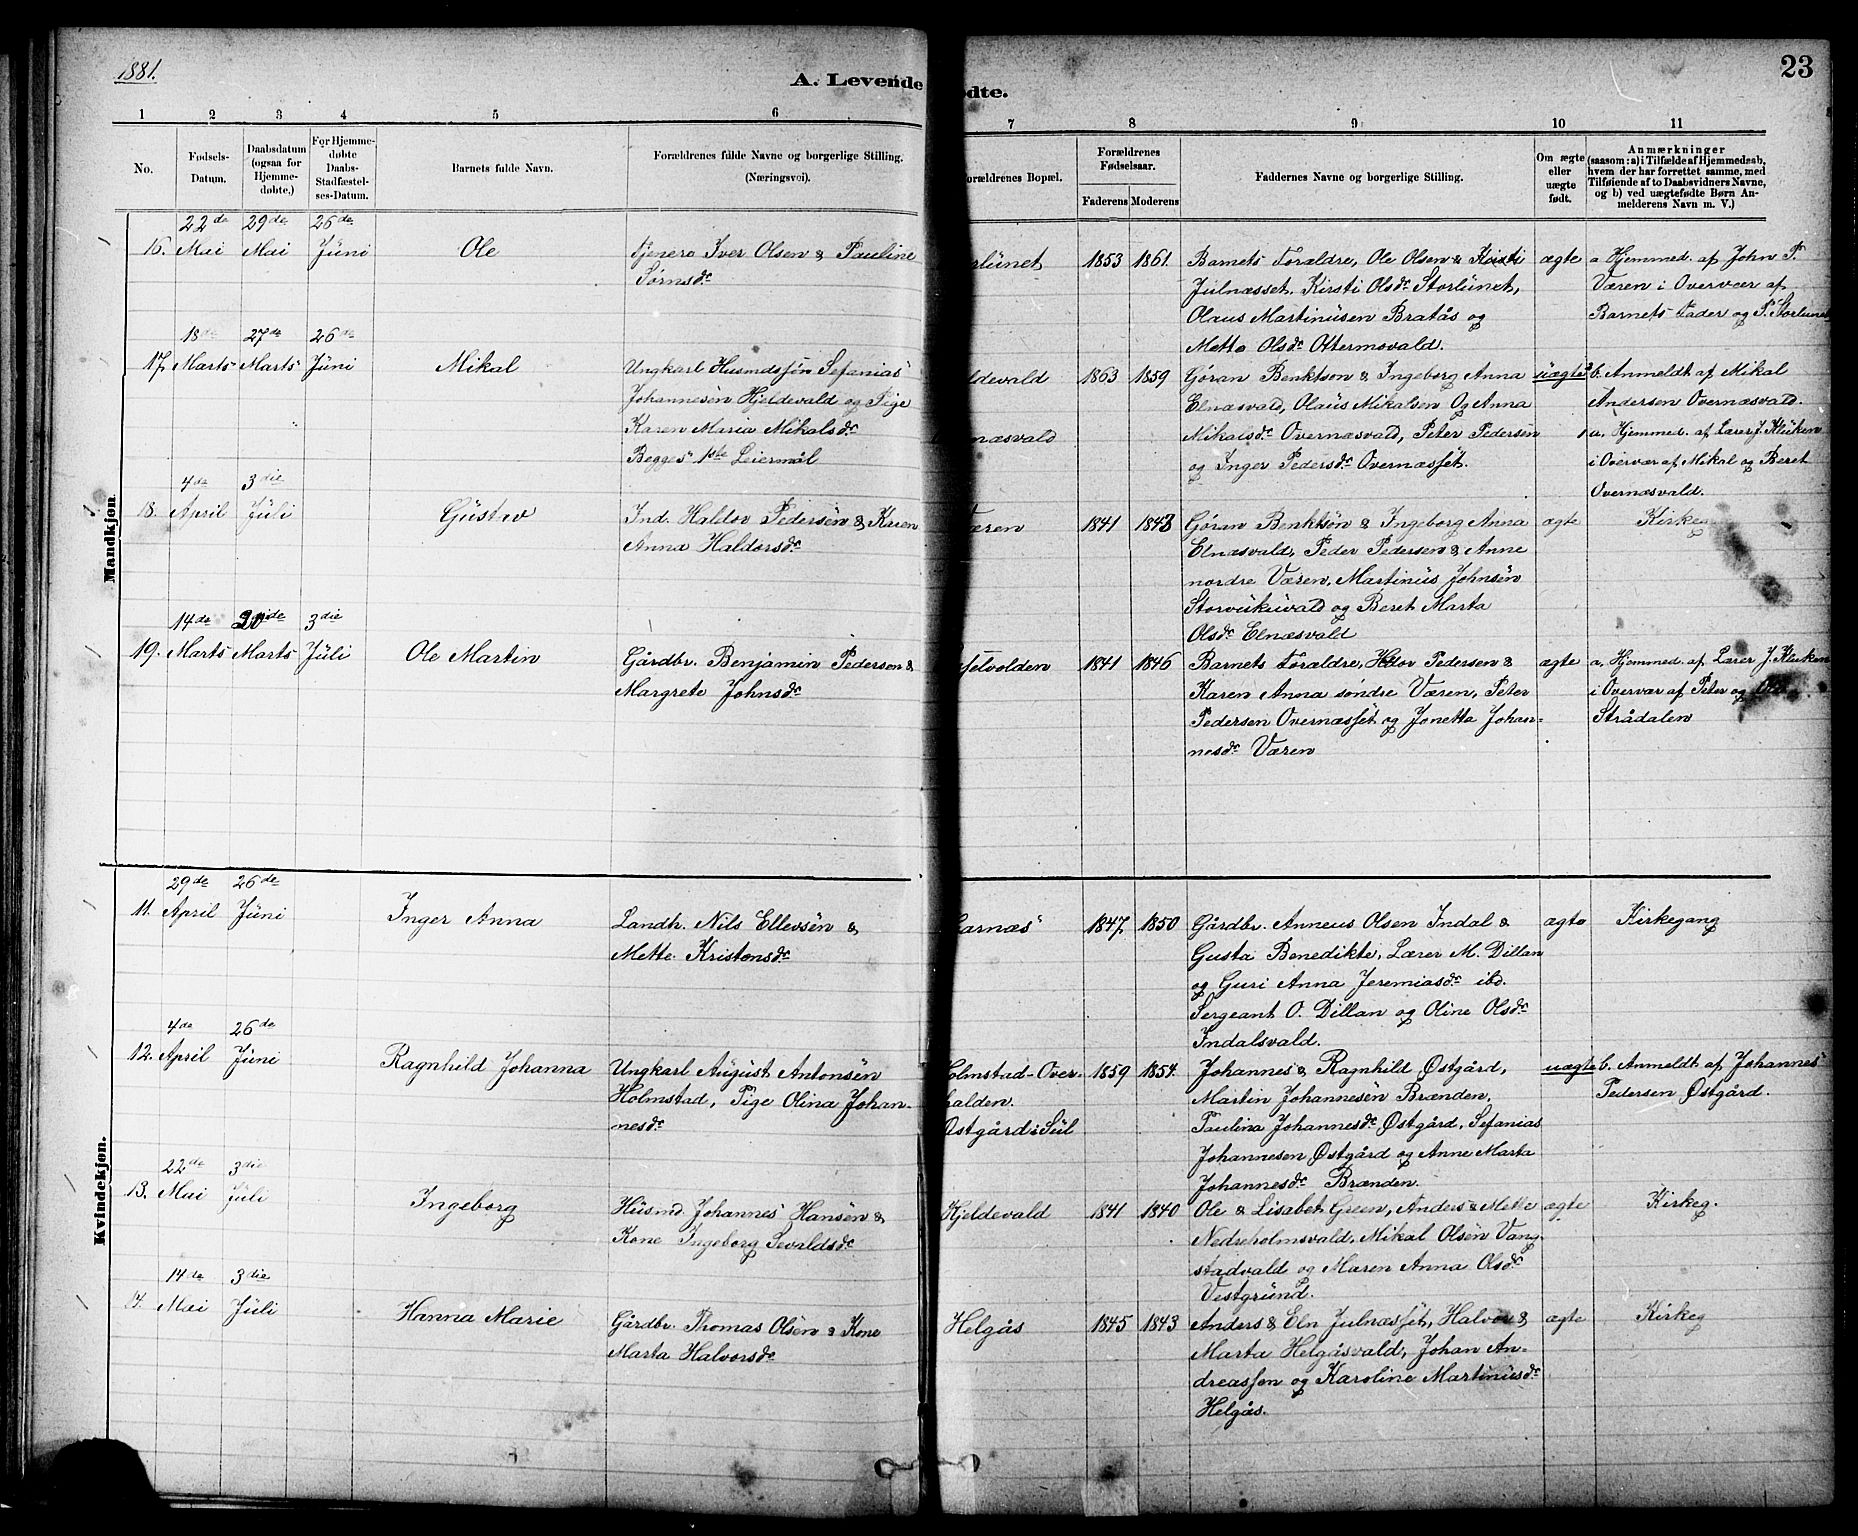 1881.
A. Levende
ødte.
23
1 2 3 4 5 6 7 8 9 10 11
No.
Fødsels-
Datum.
Daabsdatum
(ogsaa for
Hjemme-
døbte,)
For Hjemme-
døbte
Daabs-
Stadfæstel-
ses-Datum.
Barnets fulde Navn.
Forældrenes fulde Navne og borgerlige Stilling.
(Næringsvei).
Forældrenes Bopæl.
Forældrenes
Fødselsaar.
Faderens Moderens
Faddernes Navne og borgerlige Stilling.
Om ægte
eller
uægte
født.
Anmærkninger
(saasom: a) i Tilfælde af Hjemmedaab,
hvem der har forrettet samme, med
Tilføiende af to Daabsvidners Navne,
og b) ved uægtefødte Børn An-
melderens Navn m. V.)
Mandkjøn.
22de 29de 26de
16. Mai Mai Juni Ole
Tjenere Iver Olsen & Pauline
Sørnsdr
orlünet 1853 1861.
Barnets Forældre, Ole Olsen & Kirsti
Julnæsset, Kirsti Olsdr Storlünet,
Olaus Martinüsen Bratås og
Mette Olsdr Ottermsvald.
ægte
a Hjemmed. af John P.
Væren i Overvær af
Barnets Fader og P. Storlünet
18de 27de 26de
17. Marts Marts Jüni Mikal
Ungkarl Husmdssøn Sefanias
Johannesen Hjeldevald og Pige
Karen Maria Mikalsdr
Begges 1ste Leiermål
eldevald
næsvald
1863 1859
Gøran Benktson & Ingeborg Anna
Elnæsvald, Olaüs Mikalsen og Anna
Mikalsdr Overnæsvald, Peter Pedersen
og Inger Pedersdr Overnæsset.
uægte
b. Anmeldt af Mikal
Andersen Overnæsvald.
a. Hjemmed. af Lærer J. Kluken
i Overvær af Mikal og Beret
Overnæsvald.
4de 3die
18. April Jüli Güstav
Ind. Haldor Pedersen & Karen
Anna Haldorsdr
Væren 1841 1848
Gøran Benktsön & Ingeborg Anna
Elnæsvald, Peder Pedersen & Anne
nordre Væren, Martinüs Johnsen
Storvükuvald og Beret Marta
Olsdr Elnæsvald
ægte
Kirkeg
14de 20de 3die
19. Marts Marts Jüli Ole Martin
Gårdbr. Benjamin Pedersen &
Margrete Johnsdr
felvolden 1841 1846
Barnets Forældre, Hdov Pedersen &
Karen Anna søndre Væren, Peter
Pedersen Overnæsset og Jonetta Johan-
nesdr Væren
ægte
a. Hjemmed. af Lærer J. Kluken
i Overvær af Peter og
Strådalen
Kvindekjøn.
29de 26de
11. April Jüni Inger Anna
Landh. Nils Ellevsen &
Mette Kristensdr
Garnæs 1847. 1850
Gårdbr. Anneus Olsen Indal &
Gusta Benedikte, Lærer M. Dillan
og Guri Anna Jeremiasdr ibd.
Sergeant O. Dillan og Oline Olsdr
Indalsvald.
ægte
Kirkegang
4de 26de
12. April Jüni Ragnhild Johanna
Ungkarl August Antonsen
Holmstad, Pige Olina Johan-
nesdr
Holmstad-Over-
halden.
Østgård i Sül
1859 1854.
Johannes & Ragnhild Østgård,
Martin Johannesen Brænden,
Paulina Johannesdr Østgård, Sefanias
Johannesen Østgård og Anne Marta
Johannesdr Brænden.
uægte
b. Anmeldt af Johannes
Pedersen Østgård.
22de 3die
13. Mai Jüli Ingeborg
Hüsmd. Johannes Hansen &
Kone Ingeborg Sevaldsdr
Kjeldevald 1841 1840
Ole & Lisabet Green, Anders & Mette
Nedreholmsvald, Mikal Olsen Vang-
stadvald og Maren Anna Olsdr
Vestgründ.
ægte
Kirkeg.
14de 3die
14. Mai Jüli Hanna Marie
Gårdbr. Thomas Olsen & Kone
Marta Halvorsdr
Helgås 1845 1843
Anders & Eln Julnæsset, Halvor &
Marta Helgåsvald, Johan An-
dreassen og Karoline Martinüsdr
Helgås.
ægte
Kirkeg